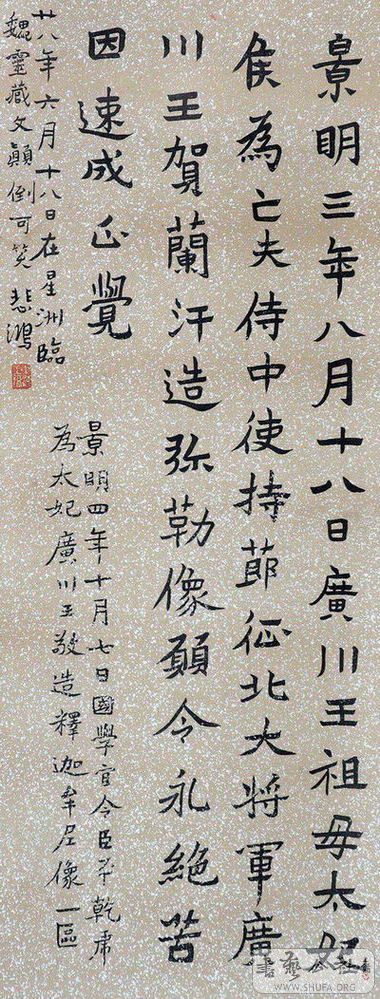 景明三年八月十八日廣川王祖母太妃
侯為亡夫侍中使持莭征北大将軍廣
川王賀蘭汗造弥勒像願令永絕苦
因速成正覺
景明四年十月七日國學官令臣平乾虎
為太妃廣川王敬造釋迦牟尼像一區
廿八年六月十八日在星洲臨
魏靈藏文顛倒可笑 悲鴻
WWW.SHUFA.ORG